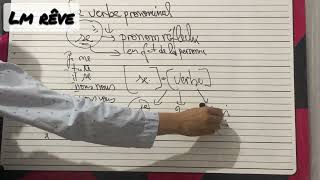 LM RÊVE
= verbe pronominal
se → pronom réfléchi
→ en fct de la personne
Je me
tu te
il se
nous nous
vous
[se] + [verbe]